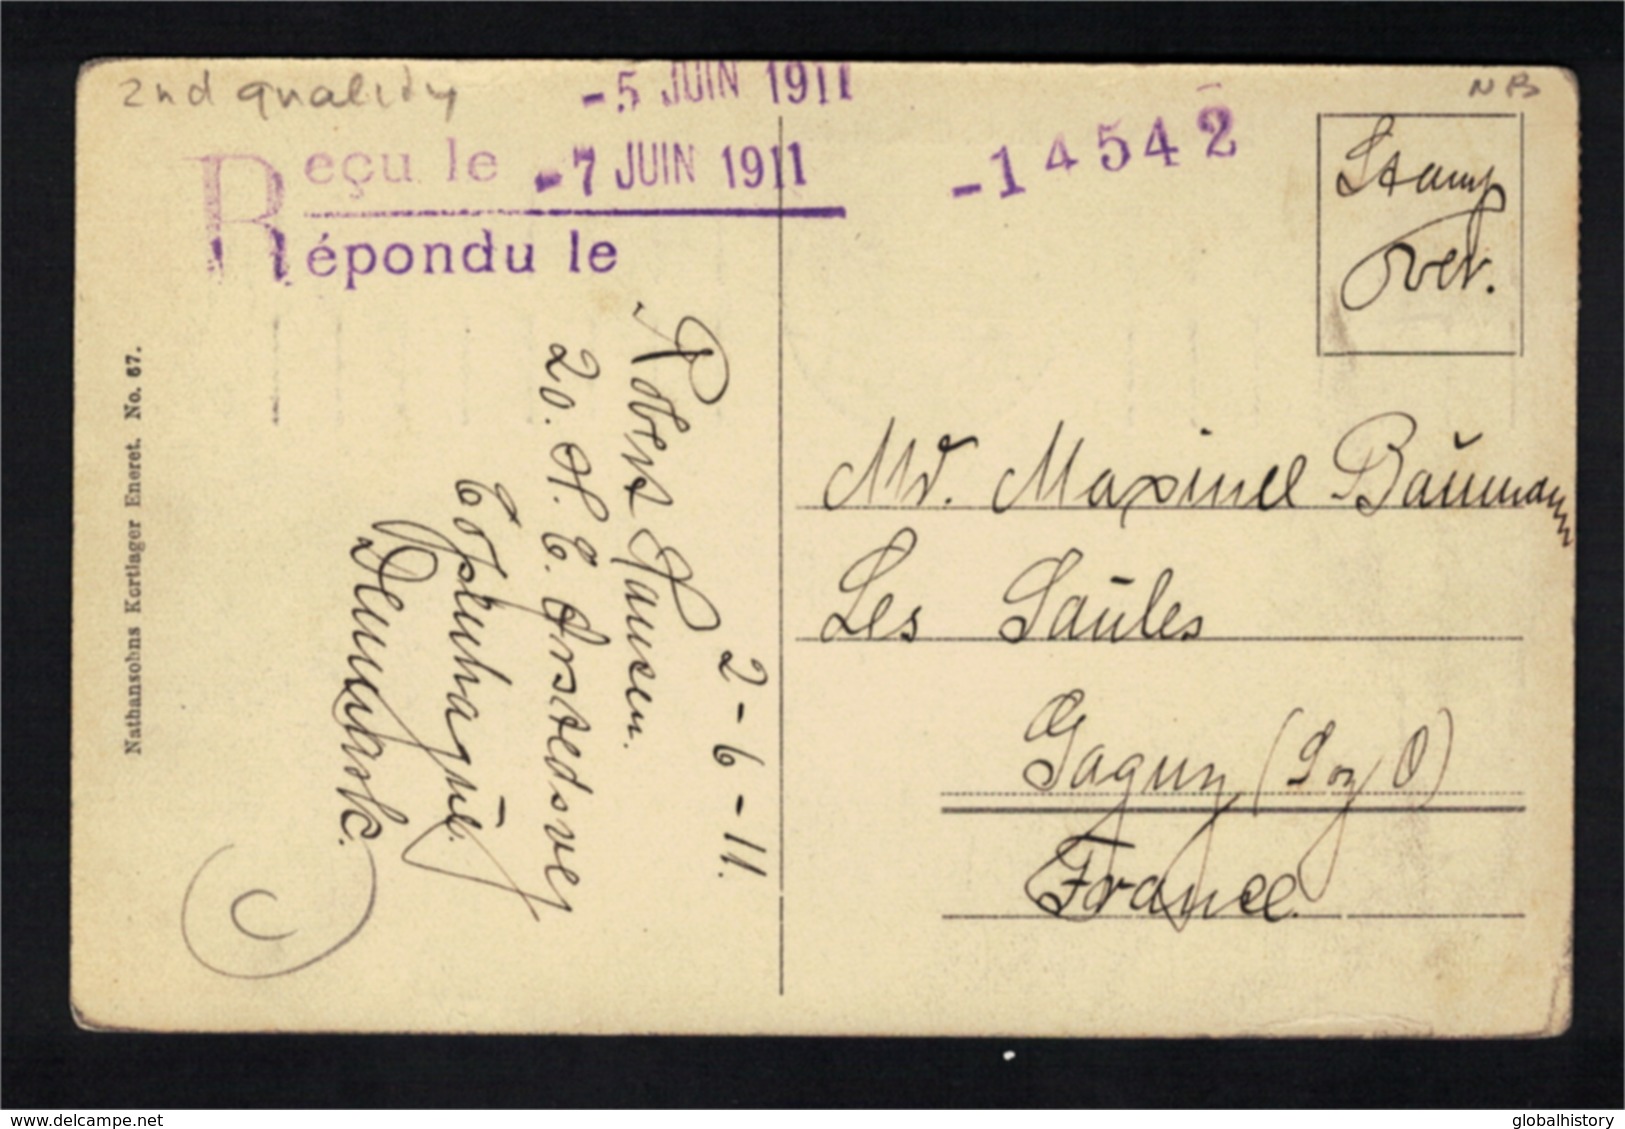 2nd quality
NB
-5 JUIN 1911
Reçu le -7 JUIN 1911
Répondu le
-14542
Stamp
over.
Nathansohns Kortlager Eneret. No. 67.
2-6-11.
Robert Hansen.
20. H. C. Ørstedsvej
Copenhague.
Denmark.
Mr. Maxime Baumann
Les Saules
Gagny (S o)
France.
www.delcampe.net
globalhistory